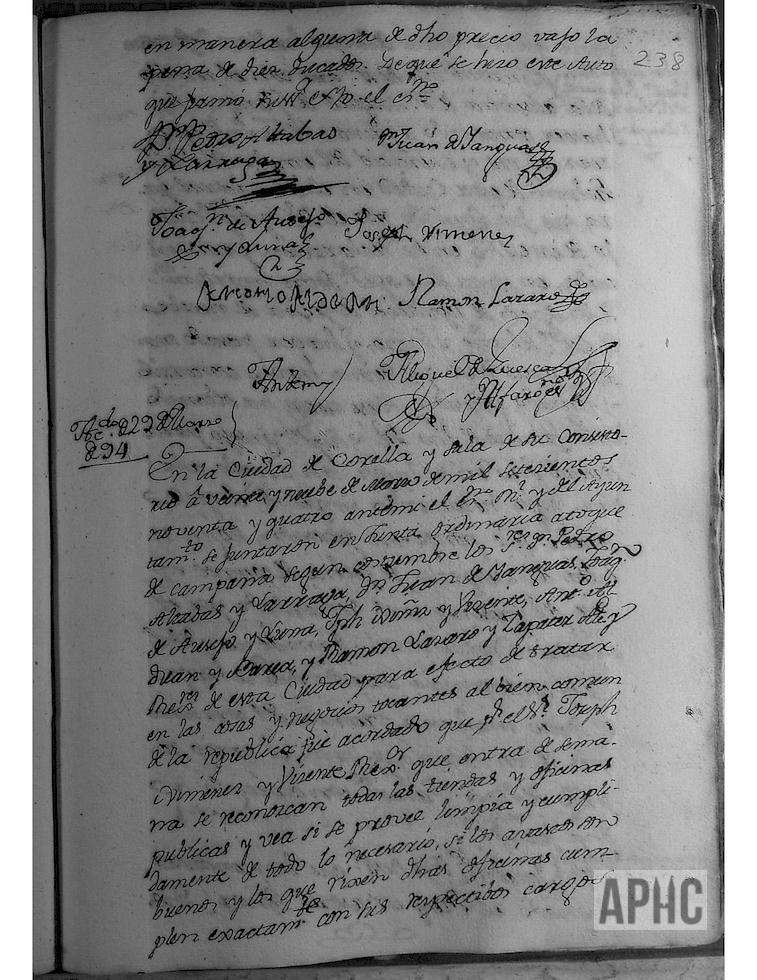 238
en manera alguna de dho precio vajo la
pena de diez ducados. De que se hizo este Auto
que firmó su sª y yo el esnº
Dn. Pedro Alcabas
y Larraga
Juan de Manguas
Joaqn. de Ausejo
y Luna
Joseph Ximenez
Antonio Alduan
Ramon Lazaro
Antemi
Miguel de Huesca
y Alfaro esno
Acdo. 29 de Marzo
de 94
En la Ciudad de Corella y Sala de su Consisto-
rio á veinte y nuebe de Marzo de mil setecientos
noventa y quatro ante mi el esno. Rl. y del Ayun
tamto. se juntaron en Junta ordinaria a toque
de campana segun costumbre los Sres. Dn Pedro
Alcabas y Larraga, Dn. Juan de Manguas, Joaqn.
de Ausejo y Luna, Jph Ximz. y Vizente, Anto. Al
duan y, y Ramon Lazaro y Zapater Alc. y
Rexres. de esta Ciudad para efecto de tratar
en las cosas y negocios tocantes al bien comun
de la republica fue acordado que pr. el Sr. Joseph
Ximenez y Vizente Rexor. que entra de sema-
na se reconozcan todas las tiendas y oficinas
publicas y vea si se provee limpia y cumpli-
damente de todo lo necesario, si los avastos son
buenos y los que rixen dhas oficinas cum-
plen exactamte. con sus respectibos cargos
APHC